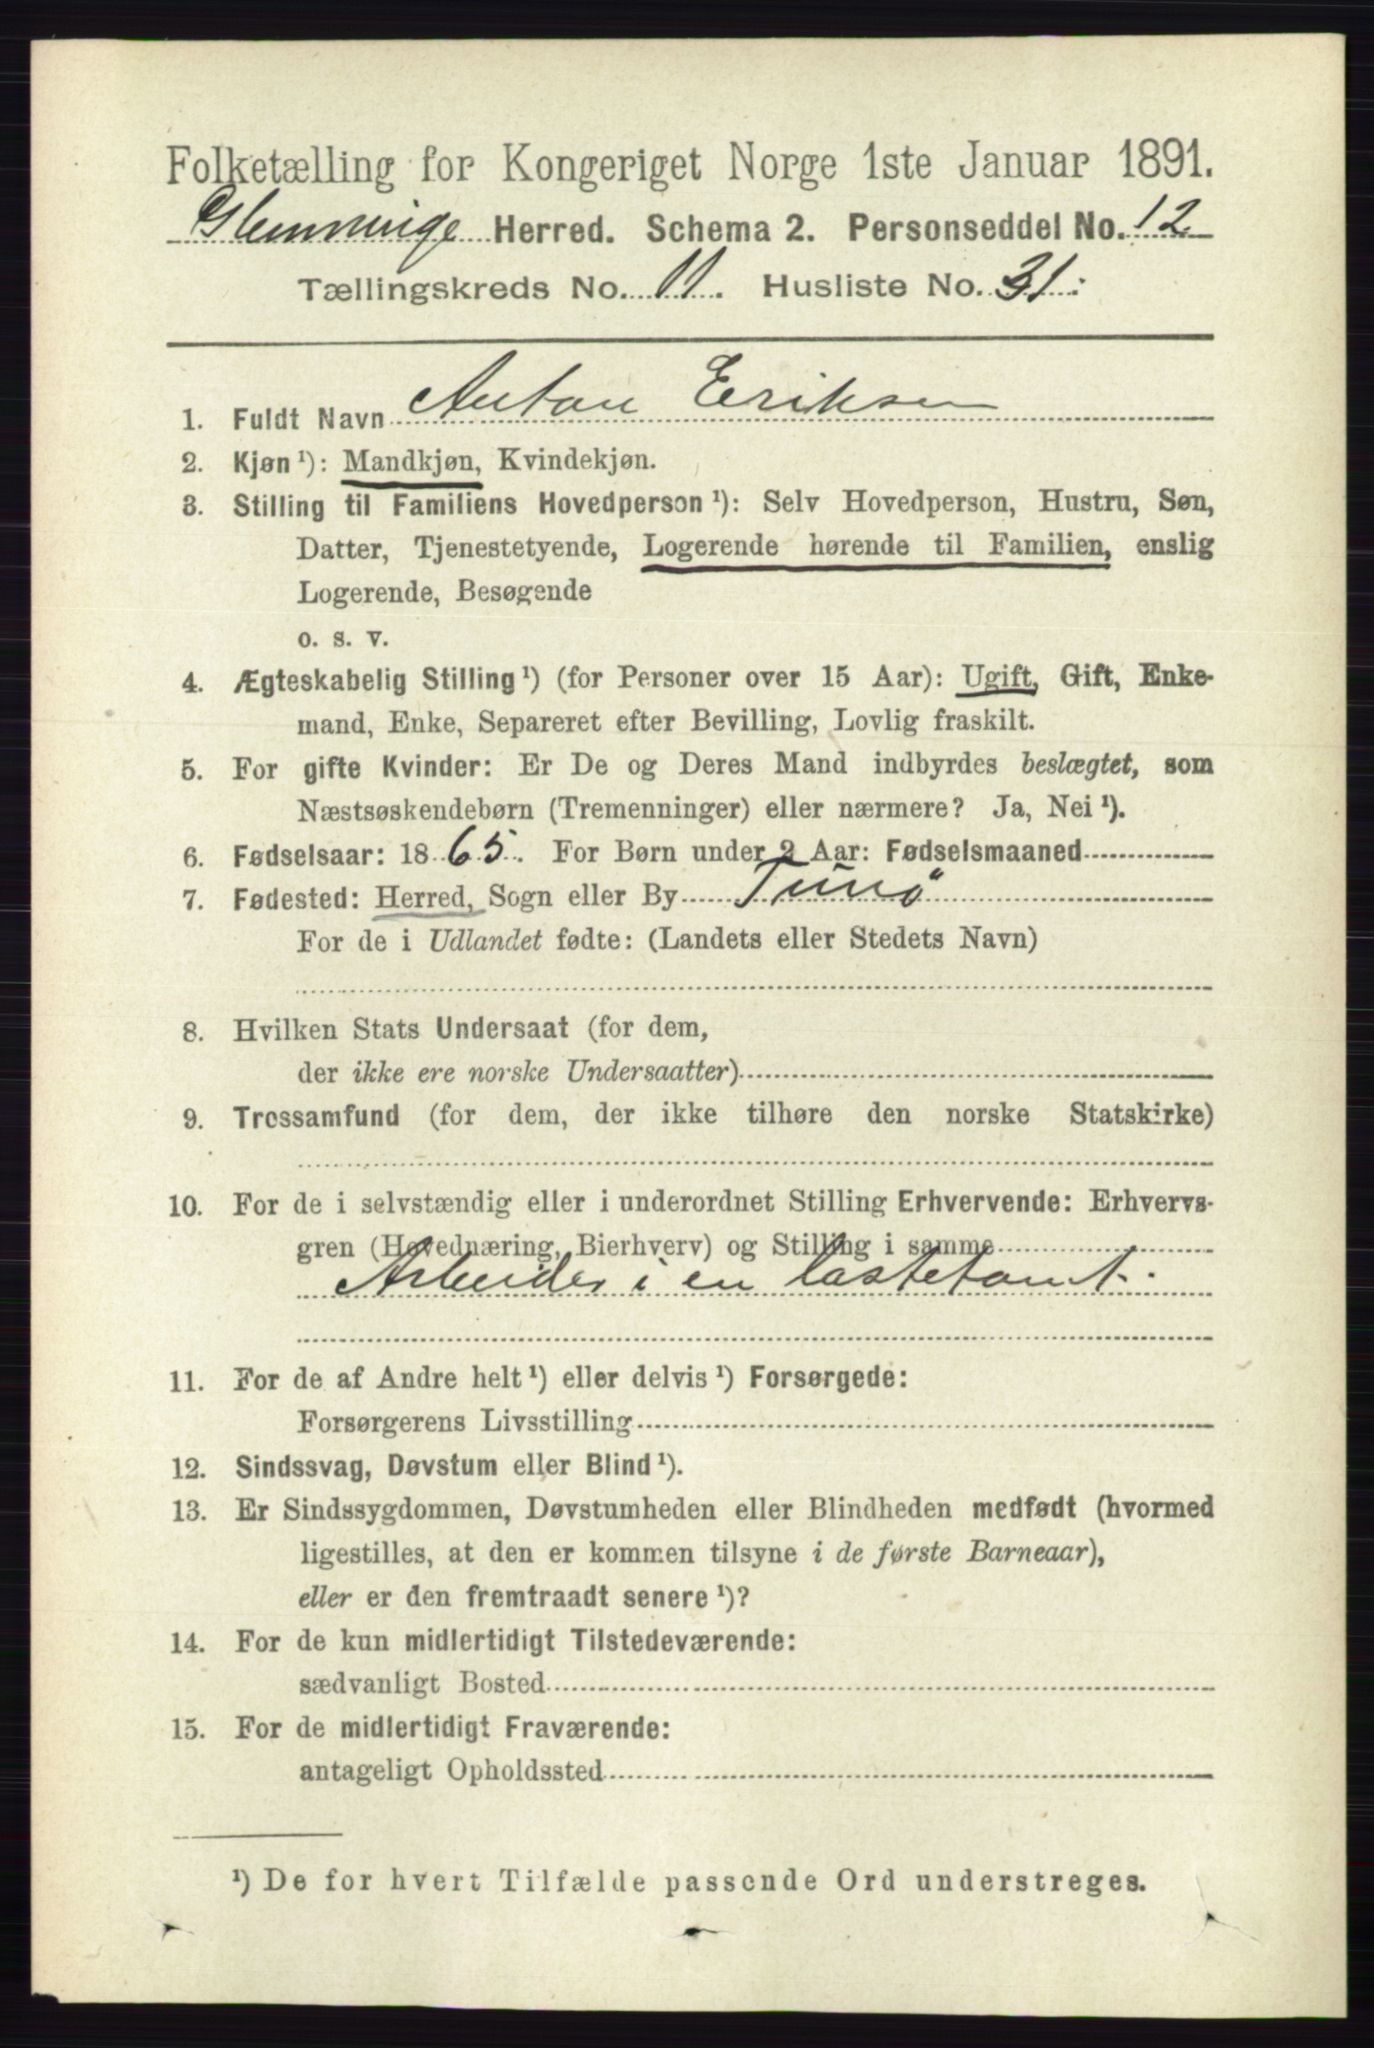 Folketælling for Kongeriget Norge 1ste Januar 1891.
Glemminge Herred. Schema 2. Personseddel No. 12
Tællingskreds No. 11. Husliste No. 31.
1. Fuldt Navn Anton Eriksen
2. Kjøn ¹): Mandkjøn, Kvindekjøn.
3. Stilling til Familiens Hovedperson ¹): Selv Hovedperson, Hustru, Søn,
Datter, Tjenestetyende, Logerende hørende til Familien, enslig
Logerende, Besøgende
o. s. v.
4. Ægteskabelig Stilling ¹) (for Personer over 15 Aar): Ugift, Gift, Enke-
mand, Enke, Separeret efter Bevilling, Lovlig fraskilt.
5. For gifte Kvinder: Er De og Deres Mand indbyrdes beslægtet, som
Næstsøskendebørn (Tremenninger) eller nærmere? Ja, Nei ¹).
6. Fødselsaar: 1865. For Børn under 2 Aar: Fødselsmaaned
7. Fødested: Herred, Sogn eller By Tunø
For de i Udlandet fødte: (Landets eller Stedets Navn)
8. Hvilken Stats Undersaat (for dem,
der ikke ere norske Undersaatter)
9. Trossamfund (for dem, der ikke tilhøre den norske Statskirke)
10. For de i selvstændig eller i underordnet Stilling Erhvervende: Erhvervs-
gren (Hovednæring, Bierhverv) og Stilling i samme
Arbeider i en lastetomt.
11. For de af Andre helt ¹) eller delvis ¹) Forsørgede:
Forsørgerens Livsstilling
12. Sindssvag, Døvstum eller Blind ¹).
13. Er Sindssygdommen, Døvstumheden eller Blindheden medfødt (hvormed
ligestilles, at den er kommen tilsyne i de første Barneaar),
eller er den fremtraadt senere ¹)?
14. For de kun midlertidigt Tilstedeværende:
sædvanligt Bosted
15. For de midlertidigt Fraværende:
antageligt Opholdssted
¹) De for hvert Tilfælde passende Ord understreges.